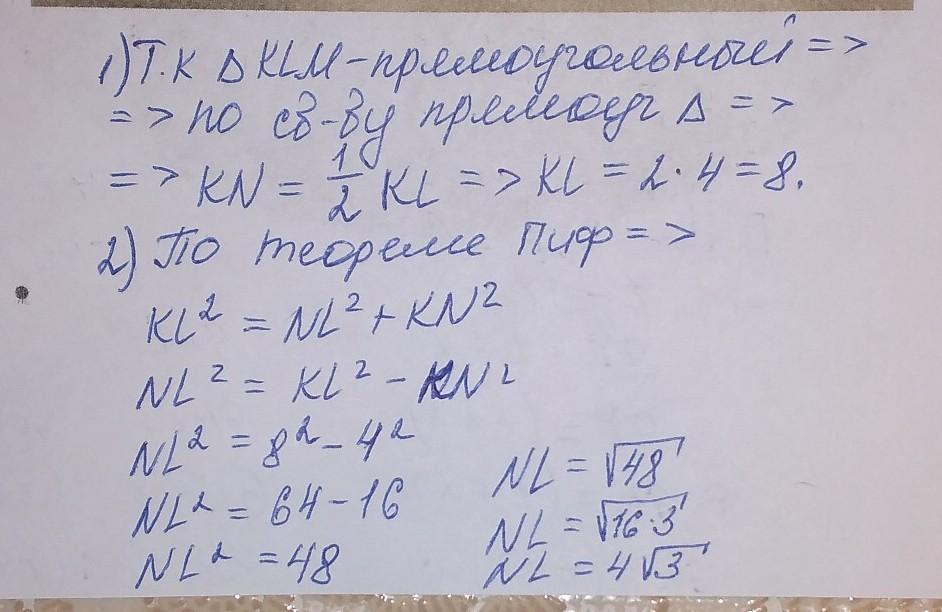 1) Т.к Δ KLM - прямоугольный =>
=> по св-ву прямоуг Δ =>
=> KN = 1/2 KL => KL = 2·4 = 8.
2) По теореме Пиф =>
KL² = NL² + KN²
NL² = KL² - KN²
NL² = 8² - 4²
NL² = 64 - 16
NL² = 48
NL = √48
NL = √16·3
NL = 4√3